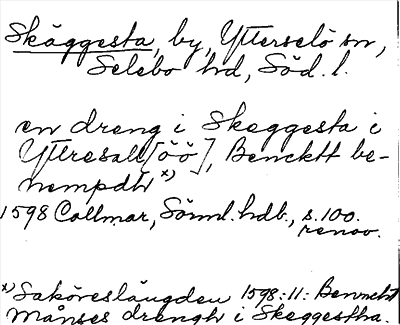 Skäggesta, by, Ytterselö sn,
Selebo hd, Söd. l.
en dreng i Skeggesta i
Yttresall[öö], Bencktt be-
nempdh x)
1598 Callmar, Sörml. hdb., s. 100.
renov.
x) Saköreslängden 1598:11: Benncht
Månses drengh i Skeggestha.